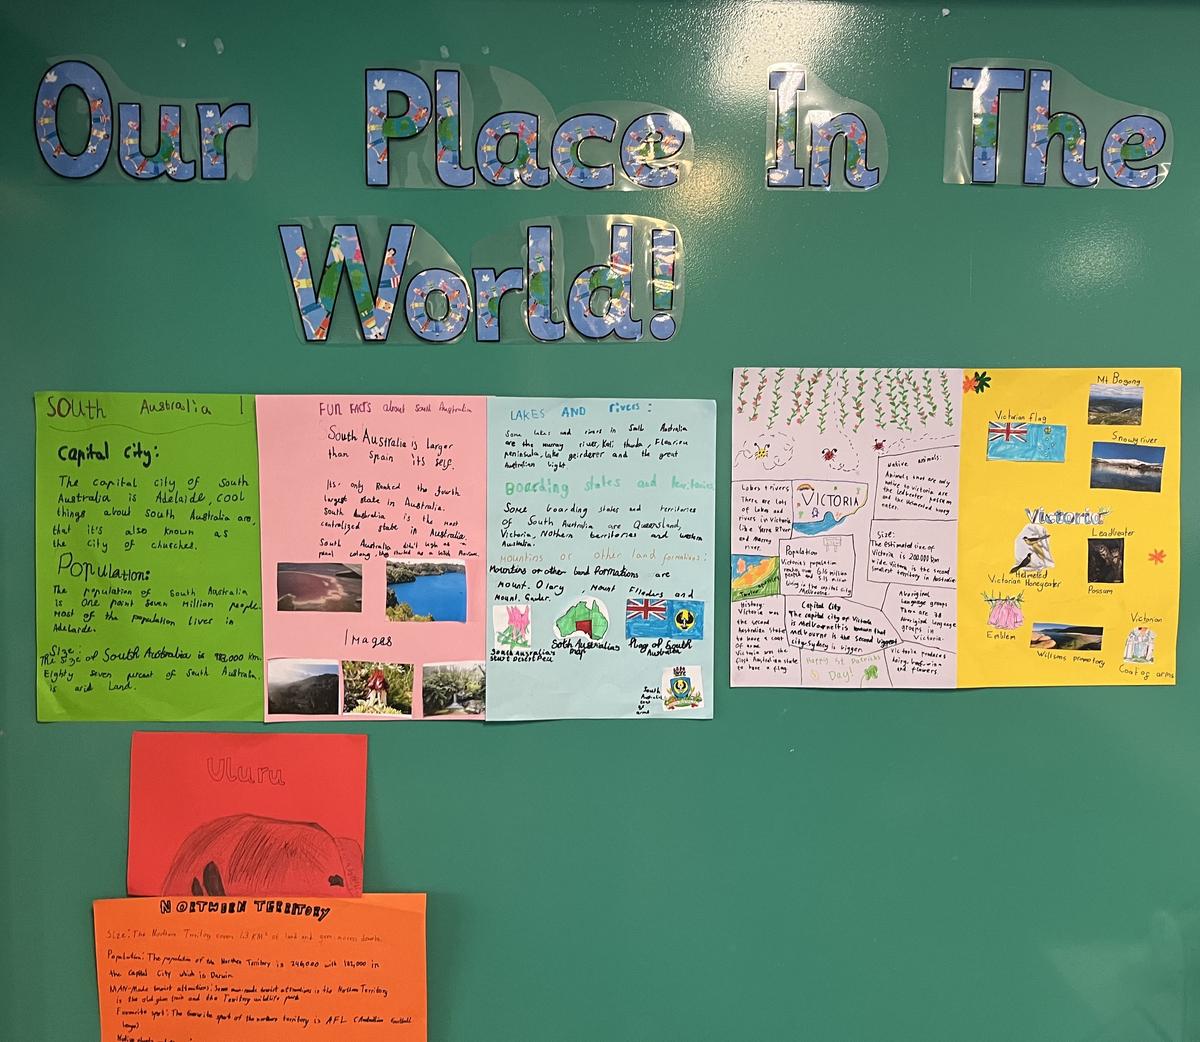 Our Place In The
World!
South Australia !
Capital city:
The capital city of South
Australia is Adelaide, cool
things about South Australia are,
that it's also known as
the city of churches.
Population:
The population of South Australia
is one point seven million people.
Most of the population lives in
Adelaide.
Size:
The size of South Australia is 983,000 km.
Eighty seven percent of South Australia
is arid land.
FUN FACTS about South Australia
South Australia is larger
than Spain its self.
Its only Ranked the fourth
largest state in Australia.
South Australia is the most
centralised state in Australia.
South Australia didn't
Images
LAKES AND rivers:
Some lakes and rivers in South Australia
are the murray river, Kati thanda, Fleurieu
peninsula, lake geirderer and the great
Australian bight.
Boarding states and territories
Some boarding states and territories
of South Australia are Queensland,
Victoria, Nothern territories and western
Australia.
Mountins or other land formations:
Mountins or other land formations are
mount. O lary, Mount Flinders and
Mount. Gawler.
South Australia's
Sturt Desert Pea
South Australias
map
Flag of South
Australia
South
Australia
coat
of
arms
Lakes + rivers
There are Lots
of Lakes and
rivers in Victoria
Like Yarra River
and Murray
river.
VICTORIA
Native animals:
Animals that are only
native to victoria are
the Leadbeater possum
and the Helmeted honey
eater.
Population
Victoria's population
million
living in the capital city
Melbourne.
Size:
The estimated size of
Victoria is 200,000 km
wide. Victoria is the second
smallest territory in Australia
History:
Victoria was
the second
Australian state
to have a coat
of arms.
Victoria was the
first Australian state
to have a flag
Capital City
The capital city of Victoria
is Melbourne. It is known that
Melbourne is the second biggest
city. Sydney is bigger.
Aboriginal
Language groups
There are 38
Aboriginal Language
groups in
Victoria.
Victoria produces
and flowers.
Happy St Patricks
Day!
Mt Bogong
Victorian flag
Snowy river
Victoria
Helmeted
Honeyeater
Leadbeater
Possum
Victorian
Emblem
Wilsons promotory
Victorian
Coat of arms
Uluru
NORTHERN TERRITORY
Size: The Northern Territory covers 1.3 KM² of land and
Population: The population of the Northern Territory is 246,000 with 182,000 in
the Capital City which is Darwin
MAN-Made tourist attractions: Some man-made tourist attractions in the Northern Territory
is the old ghan train and the Territory wildlife park
Favourite sport: The favourite sport of the northern territory is AFL (Australian football
league)